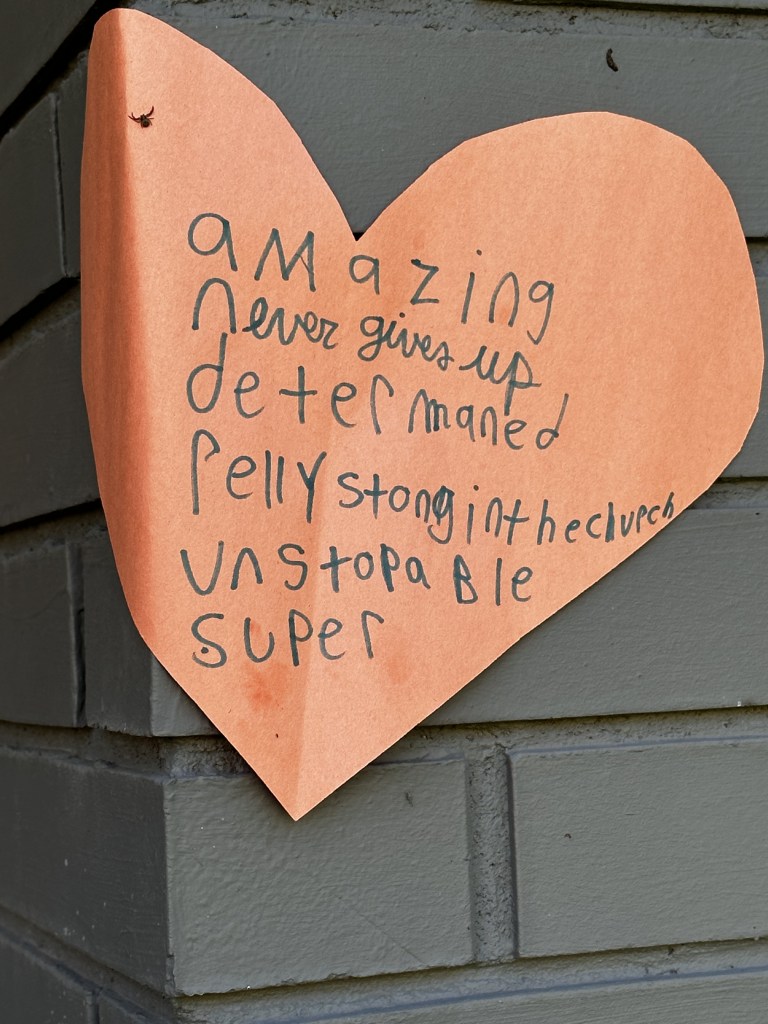 amazing
never gives up
determaned
relly stong in the clurch
unstopable
super